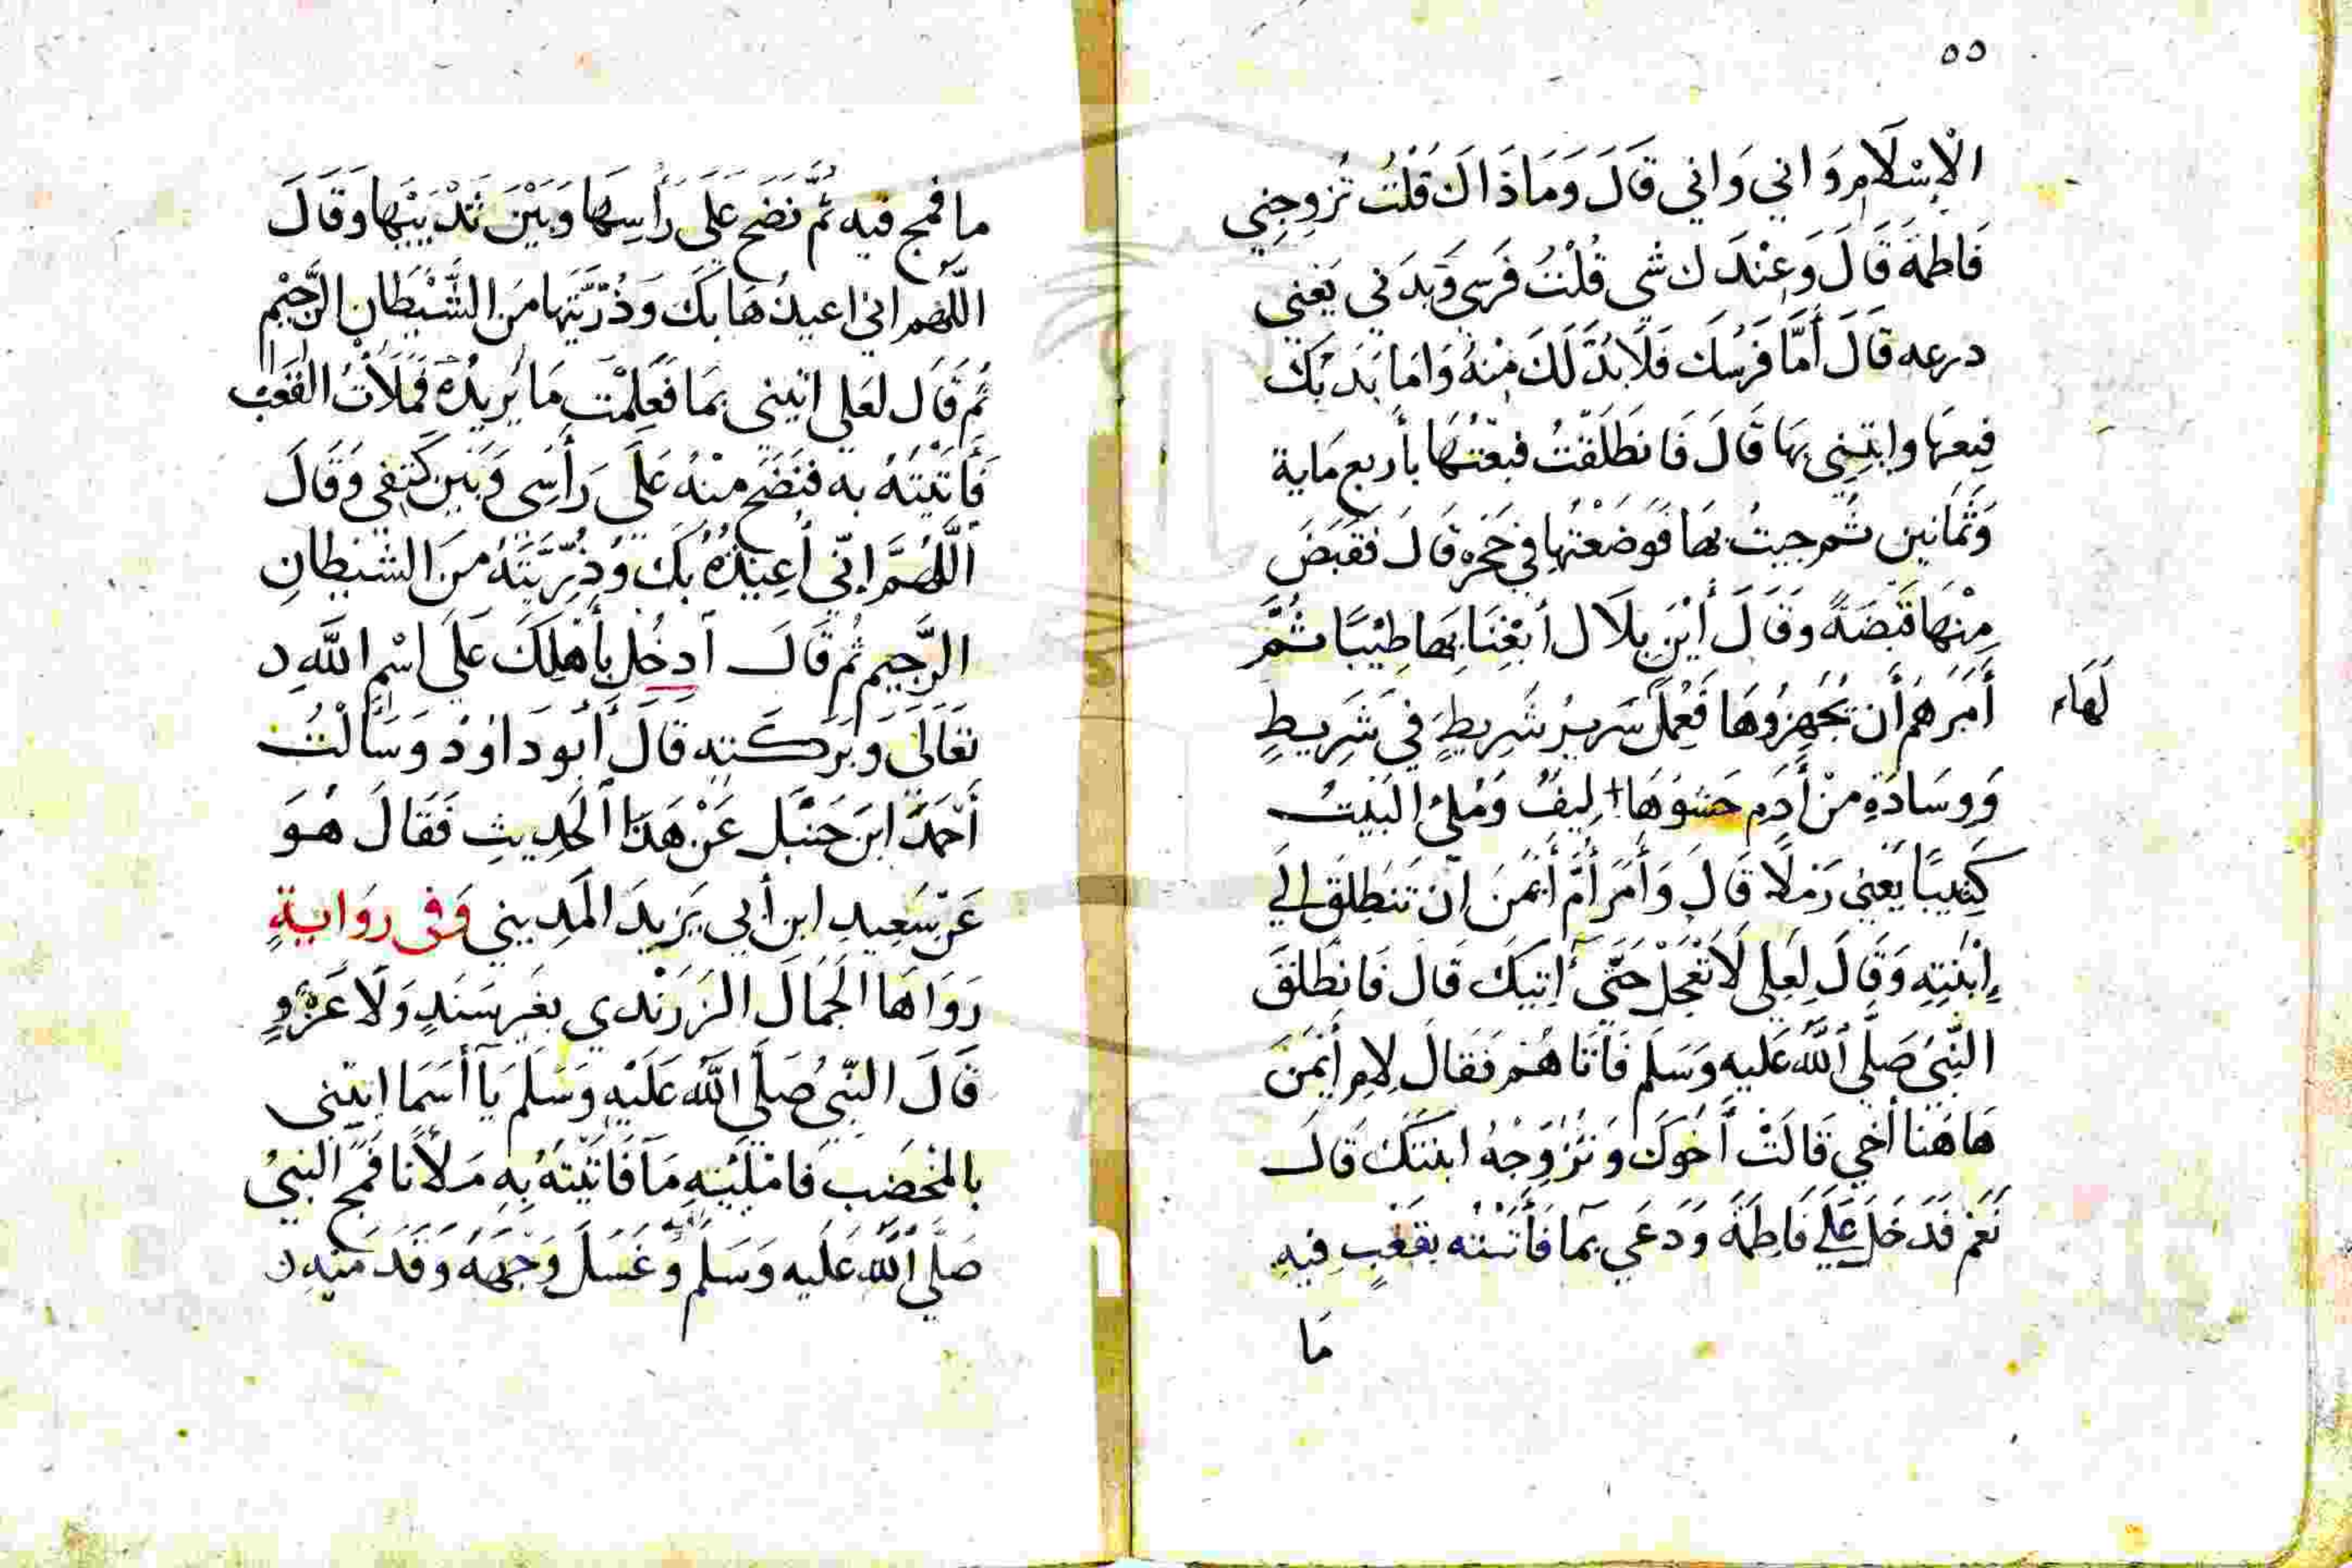 ٥٥
الْإِسْلَامِ وَاني وَاني قَالَ وَمَا ذَاكَ قُلْتُ تُزوجِني
فَاطمَةَ قَالَ وَعِنْدَك شي قُلْتُ فَرَسي وَبَدَني يَعْني
درعه قَالَ أَمَّا فَرَسُكَ فَلَابُدَّ لَكَ مِنْهُ وَامَا بَدَنُكَ
فبِعهَا وايتِني بهَا قَالَ فَانطَلَقْتُ فبعْتُهَا بأَربع مَاية
وَثَمَانين ثُم جيتُ بهَا فَوَضَعْتُهَا في حَجْرِهِ قَالَ فَقَبَضَ
مِنْهَا قَبْضَةً وَقَالَ أَيْنَ بِلَال أَبْغِنَا بِهَا طِيْبًا ثُمَّ
أَمَرَهُم أَن يُجَهِزُوهَا فَعُمِلَ سَرِيرُ شَرِيطٍ في شَرِيطٍ
لَهَا
وَوِسَادَةٍ منْ أَدَمٍ حَشوُهَا لِيفٌ وَمُلِئَ الْبَيْتُ
كَثِيبًا يَعْنِي رَمْلًا قَالَ وَأَمَرَ أُمَّ أَيْمَنَ انْ تَنطَلِقَ الي
إِبْنَتِهِ وَقَالَ لِعَلِي لَا تَعْجَلْ حَتَّى أتِيَكَ قَالَ فَانطَلَقَ
النَّبِيُ صَلَّى اللَّهُ عَليهِ وَسَلَم فَأَتَاهُم فَقَالَ لِامِ أَيْمَنَ
هَاهُنا أَخي قَالَتْ أَخُوكَ وَتُزَوِجْهُ ابنتَكَ قَالَ
نَعَمْ فَدَخَلَ عَلَي فَاطِمَةَ وَدَعَي بمَا فَأَتَتْه بقَعْبٍ فِيهِ
مَا
ما فمج فيه ثُمَّ نَضَحَ عَلَى رَأْسِهَا وَبَيْنَ ثَدْيَيْهَا وَقَالَ
اللَّهُم اني اعيذُهَا بكَ وَذُرِّيَّتَهَا منَ الشَّيْطَانِ الرَّجِيْمِ
ثُم قَال لعَلي اتيني بمَا فَعَلِمْت مَا يُرِيدُهُ فَمَلَأْتُ الْقَعْبَ
فَأَتَيْتُهُ به فنَضَحَ منْهُ عَلَى رَأْسِي وَبَيْن كَتفي وَقَالَ
اللَّهُمَّ إِنّي أُعِيْذُهُ بكَ وَذُرِّيَّتَهُ منَ الشَّيْطانِ
الرَّجِيمِ ثُم قَالَ ادخُل بأَهْلِكَ عَلَى اسْمِ اللَّهِ
تَعَالَى وَبَرَكَتِهِ قَالَ أَبو دَاوُدَ وَسَأَلْتُ
أَحْمَدَ ابنَ حَنْبَلٍ عَنْ هَذَا الْحَدِيثِ فَقَالَ هُوَ
عَنْ سَعِيدِ ابن أبي يَزِيدَ الْمَدِيني وَفي رِوَايةٍ
رَوَاهَا الْجَمَالُ الزَرَنْدي بغَيرِ سَنَدٍ وَلَا عَزْوٍ
قَالَ النَّبِيُ صَلَّى اللَّهُ عَلَيْهِ وَسَلَم يَا أَسْمَا ايتِيني
بالمِخْضَبِ فَامْلَيْتِهِ مَا فَأَتَيْتَهُ بِهِ مَلأَنًا فَمَجَ النبيُ
صَلَّى اللَّهُ عَليهِ وَسَلَم وَغَسَلَ وَجْهَهُ وَقَدَمَيْهِ